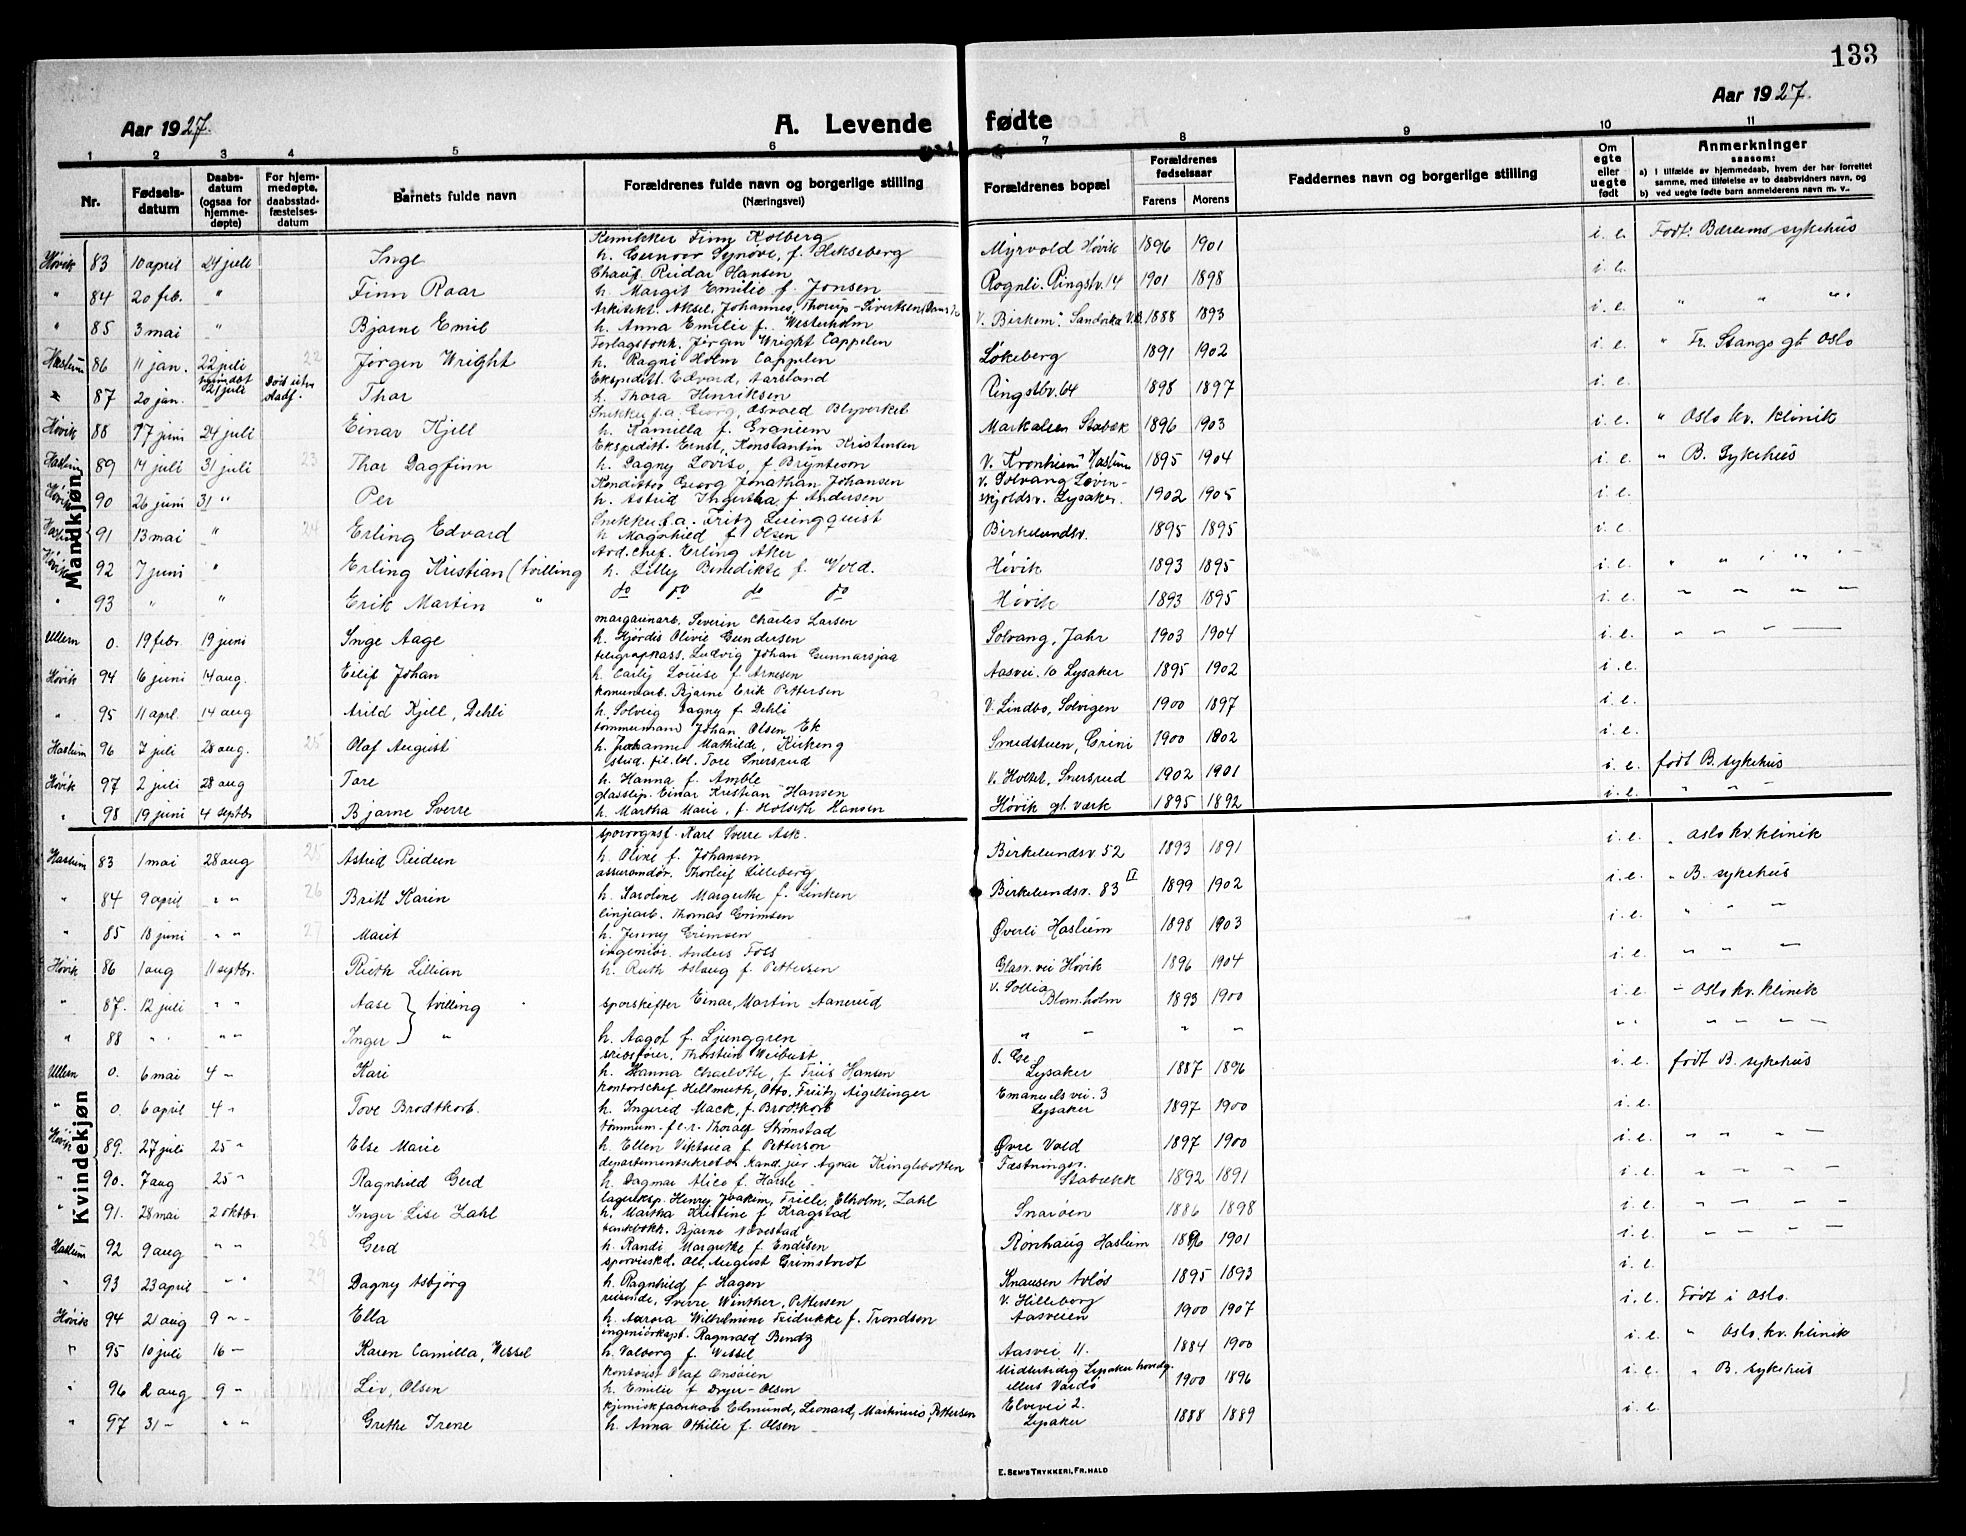 133
Aar 1927.
A. Levende fødte
Aar 1927.
1 2 3 4 5 6 7 8 9 10 11
Nr.
Fødselsdatum
Daabsdatum (ogsaa for hjemmedøpte)
For hjemmedøpte, daabsstadfæstelsesdatum
Barnets fulde navn
Forældrenes fulde navn og borgerlige stilling (Næringsvei)
Forældrenes bopæl
Forældrenes fødselsaar
Farens Morens
Faddernes navn og borgerlige stilling
Om egte eller uegte født
Anmerkninger
saasom:
a) I tilfælde av hjemmedaab, hvem der har forrettet samme, med tilføielse av to daabsvidners navn, og
b) ved uegte fødte barn anmelderens navn m. v..
Mandkjøn
Finn Kolberg
Høvik 83 10 april 24 juli Inge h. Gunvor Synøve, f. Hekseberg Myrvold Høvik 1896 1901 i. e. Født: Bærums sykehus
Chauf. Reidar Hansen
" 84 20 feb. " Finn Roar h. Margit Emilie f. Jonsen Rognli. Ringstv. 14 1901 1898 i. e.
Arkitekt. Aksel, Johannes, Thorup-Siverksen
" 85 3 mai " Bjarne Emil h. Anna Emilie f. Westerholm V. Birkem". Sandvika 1888 1893 i. e. " " "
Forlagsbokh. Jørgen Wright Cappelen
Haslum 86 11 jan. 22 juli 22 Jørgen Wright h. Ragni Holm Cappelen Løkeberg 1891 1902 i. e. " Fr. Stangs gt. Oslo
Ekspedit. Edvard, Aarsland
" 87 20 jan. 21 juli Thor h. Thora Henriksen Ringstbv. 64 1898 1897 i. e.
Snikker f.a. Georg, Osvald Blyverket
Høvik 88 17 juni 24 juli Einar Kjell h. Kamilla f. Granium Stabæk 1896 1903 i. e. " Oslo kv. klinik
Ekspedit. Ernst, Konstantin Kristensen
Haslum 89 14 juli 31 juli 23 Thor Dagfinn h. Dagny Lovise, f. Brynteson V. Kronheim" Haslum 1895 1904 i. e. " B. Sykehus
Konditter Georg Jonathan Johansen V. Solvang Løvin-
Høvik 90 26 juni 31 " Per h. Astrid f. Andersen skjoldsv. Lysaker. 1902 1905 i. e.
Snikker f.a. Fritz Ljungquist
91 13 mai " 24 Erling Edvard h. Magnhild f. Olsen Birkelundsv. 1895 1895 i. e.
Avd. chef. Erling Aker
Høvik 92 7 juni " Erling Kristian (tvilling h. Lilly Benedikte f. Wold. Høvik 1893 1895 i. e. " " " " "
" 93 " " Erik Martin " do do do do Høvik 1893 1895 i. e. " " " "
margarinarb. Severin Charles Larsen
Ullern 0. 19 febr. 19 juni Inge Aage h. Hjørdis Olivie Gundersen Solvang, Jahr 1903 1904 i. e. " " " "
telegrafkass. Ludvig Johan Gunnarsjaa
Høvik 94 16 juni 14 aug. Eilif Johan h. Louise f. Arnesen Aasvei. 10 Lysaker 1895 1902 i. e.
komunarb. Bjarne Erik Pettersen
" 95 11 april 14 aug Arild Kjell, Dehli h. Solveig Dagny f. Dehli V. Lindbo, Solvigen 1900 1897 i. e.
tømmermand Johan Olsen Ek
Haslum 96 7 juli 28 aug. 25 Olaf August h. Johanne Mathilde, Kirkeng Smedstuen, Grini 1900 1902 i. e.
stud. fil. ld. Tore Snersrud
Høvik 97 2 juli 28 aug Tore h. Hanna f. Amble V. Holtet, Snersrud 1902 1901 i. e. født B. sykehus
glasslip. Einar Kristian Hansen
" 98 19 juni 4 septbr Bjarne Sverre h. Martha Marie, f. Holseth Hansen Høvik gl. værk 1895 1892 i. e. " " "
Kvindekjøn
sporvognsf. Karl Sverre Ask.
Haslum 83 1 mai 28 aug 25 Astrid Reidun h. Oline f. Johansen Birkelundsv. 52 1893 1891 i. e. " Oslo kv. klinik
assurandør. Thorleif Lilleberg
" 84 9 april " " 26 Britt Karin h. Karoline Margrethe f. Linken Birkelundsv. 83 II 1899 1902 i. e. " B. sykehus
linjearb. Thomas Grimsen
" 85 18 juni " " 27 Marit h. Jenny Grimsen Øverli Haslum 1898 1903 i. e. " " "
ingeniør. Anders Foss
Høvik 86 1 aug 11 septbr. Ruth Lillian h. Ruth Aslaug f. Pettersen Glassv. vei Høvik 1896 1904 i. e. " " "
" 87. 12 juli " " Aase } tvilling sporskifter Einar, Martin Aanerud V. Sollia Blomholm 1893 1900 i. e. " Oslo kv. klinik
" 88 " " " " Inger " h. Aagot f. Ljunggren " " " " " " " " " "
skibsfører. Thorstein Weibust
Ullern 0. 6 mai 4 " Kari h. Hanna Charlotte, f. Friis Hansen Lysaker 1887 1896 i. e. født B. sykehus
kontorschef Hellmuth, Otto, Freitz Aigeltinger Emanuels vei. 3
" 0. 6 april 4 " Tove Brodtkorb. h. Ingerid Mack, f. Brodtkorb Lysaker 1897 1900 i. e.
tømmerm. f.e.r. Thoralf Strømstad
Høvik 89. 27 juli 25 " Else Marie h. Ellen Viktoria f. Petterson Øvre Vold 1897 1900 i. e. " " " "
departementsekretær kand. jur Agnar Kringlebotten Fæstningsv.
" 90. 7 aug 25 " Ragnhild Gerd h. Dagmar Alice f. Hasle Stabækk 1892 1891 i. e. " " " "
lagereksp. Henry Joakim, Friele, Elholm, Zahl
" 91. 28 mai 2 oktbr Inger Lise Zahl h. Martha Kristine f. Kragstad Snarøen 1886 1898 i. e. " " " "
bankbokh. Bjarne Nævestad
Haslum 92 9 aug " " 28 Gerd h. Randi Margrethe f. Endisen Rønhaug Haslum 1896 1901 i. e. " " " "
Ole, August Grimstvedt
" 93 23 april " " 29 Dagny Asbjørg h. Ragnhild f. Hagen Knausen Avløs 1895 1893 i. e.
reisende, Sverre Winther, Pettersen V. Hilleborg
Høvik 94 21 aug 9 " Ella h. Aurora Wilhelmine Fridrikke f. Trondsen Aasveien 1900 1907 i. e. Født i Oslo.
ingeniørkapt. Ragnvald Bentz
" 95 10 juli 16 " Karen Camilla, Wessel h. Valborg f. Wessel Aasvei 11. 1884 1900 i. e. " Oslo. kv. klinik
kontorist Olaf Onsøien Midlertidig Lysaker hovedg.
" 96 2 aug 9 " Liv, Olsen h. Emilie f. Dryer-Olsen ellers Vardø 1900 1896 i. e. " B. sykehus
kjemisk fabrikarb Edmund, Leonard, Martinius, Pettersen Elvevei 2.
" 97 31 " " " Grethe Irene h. Anna Othilie f. Olsen Lysaker 1888 1889 i. e.
E. SEM'S TRYKKERI, FR. HALD